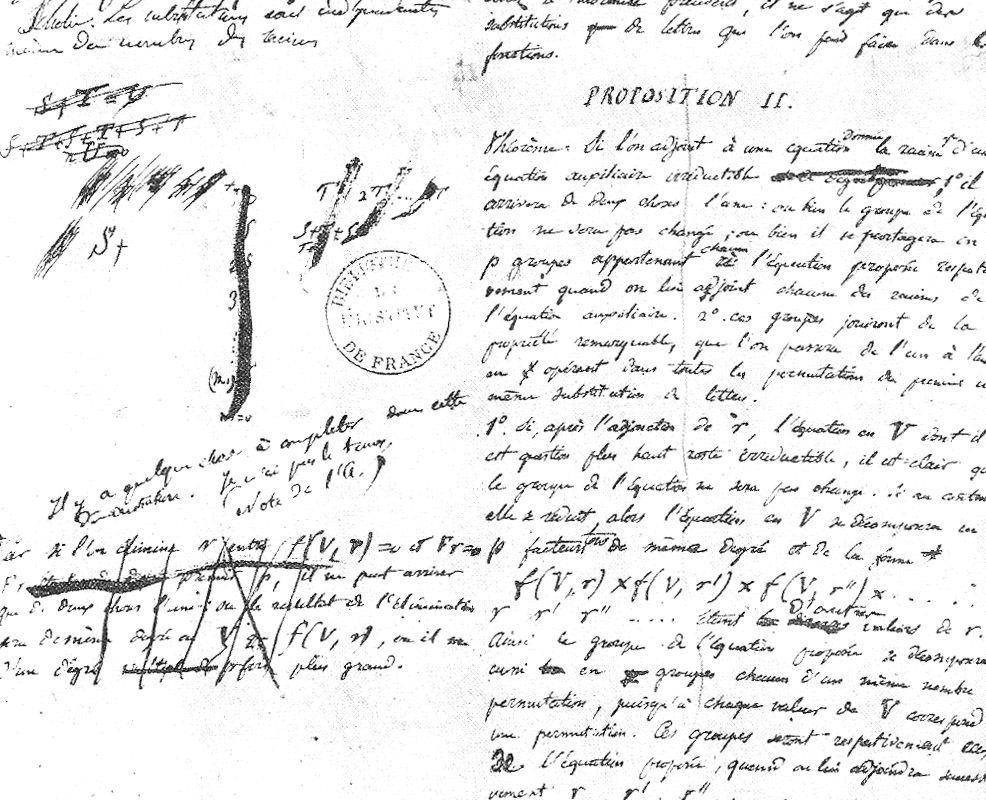 Les substitutions sont indépendantes
même du nombre des racines
S+
T 2T
BIBLIOTHÈQUE
DE
L'INSTITUT
DE FRANCE
Il y a quelque chose à compléter dans cette
démonstration. Je n'ai pas le tems.
(Note de l'A.)
Car si l'on élimine r entre f(V, r) = 0 et Fr = 0
premier p, il ne peut arriver
que de deux choses l'une: ou le résultat de l'élimination
sera de même degré en V que f(V, r), ou il sera
d'un degré p fois plus grand.
il ne s'agit que des
substitutions de lettres que l'on peut faire dans les
fonctions.
PROPOSITION II.
Théorème. Si l'on adjoint à une équation donnée la racine r d'une
équation auxiliaire irréductible 1° il
arrivera de deux choses l'une: ou bien le groupe de l'équa
tion ne sera pas changé, ou bien il se partagera en
p groupes appartenant chacun à l'équation proposée respecti
vement quand on lui adjoint chacune des racines de
l'équation auxiliaire. 2° ces groupes jouiront de la
propriété remarquable, que l'on passera de l'un à l'autre
en opérant dans toutes les permutations du premier une
même substitution de lettres.
1° Si, après l'adjonction de r, l'équation en V dont il
est question plus haut reste irréductible, il est clair que
le groupe de l'équation ne sera pas changé. Si au contraire
elle se réduit, alors l'équation en V se décomposera en
p facteurs tous de même degré et de la forme
f(V, r) × f(V, r') × f(V, r'') × . . . . .
r r' r'' ..... étant d'autres valeurs de r.
Ainsi le groupe de l'équation proposée se décomposera
aussi en groupes chacun d'un même nombre
permutations, puisqu'à chaque valeur de V correspond
une permutation. Ces groupes seront respectivement ceux
de l'équation proposée, quand on lui adjoindra successi
vement r r' r''